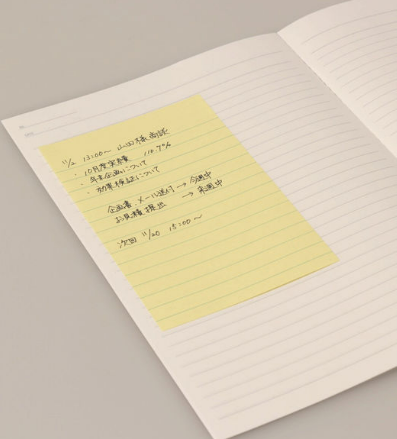 11/2 13:00〜 山田様商談
・10月度実績 110.7%
・年末企画について
・効果検証について
企画書 メール送付 → 今週中
お見積提出 → 来週中
次回 11/20 15:00〜